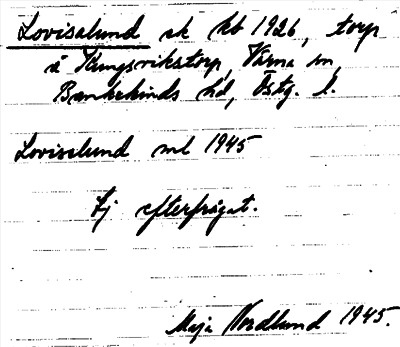 Lovisalund ek kb 1926, torp
å Kungsvikstorp, Värna sn,
Bankekinds hd, Östg. l.
Lovisalund ml 1945
Ej efterfrågat.
Maja Nordlund 1945.